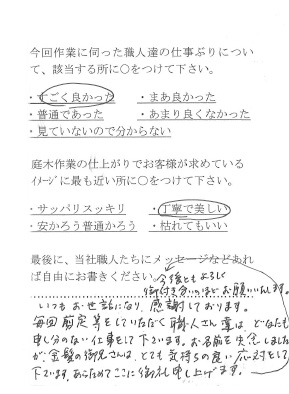 今回作業に伺った職人達の仕事ぶりについ
て、該当する所に○をつけて下さい。
・すごく良かった　・まあ良かった
・普通であった　・あまり良くなかった
・見ていないので分からない
庭木作業の仕上がりでお客様が求めている
ｲﾒｰｼﾞに最も近い所に○をつけて下さい。
・サッパリスッキリ　・丁寧で美しい
・安かろう普通かろう　・枯れてもいい
最後に、当社職人たちにメッセージなどあれ
ば自由にお書きください。
今後ともよろしく
御付き合いのほどお願いいたします。
いつもお世話になり、感謝しております。
毎回剪定等をしていただく職人さん達は、どなたも
申し分のない仕事をして下さいます。お名前を失念しました
が、金髪の御兄さんは、とても気持ちの良い応対をして
下さいます。あらためてここに御礼申し上げます。